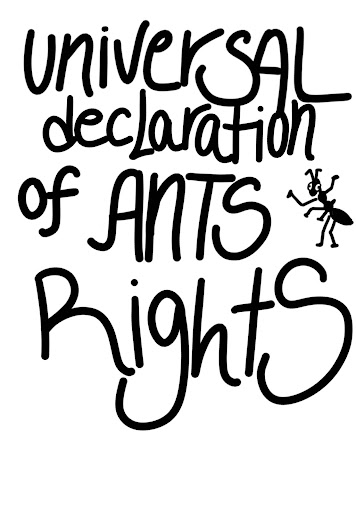 universAL
decLaration
of ANTS
RightS